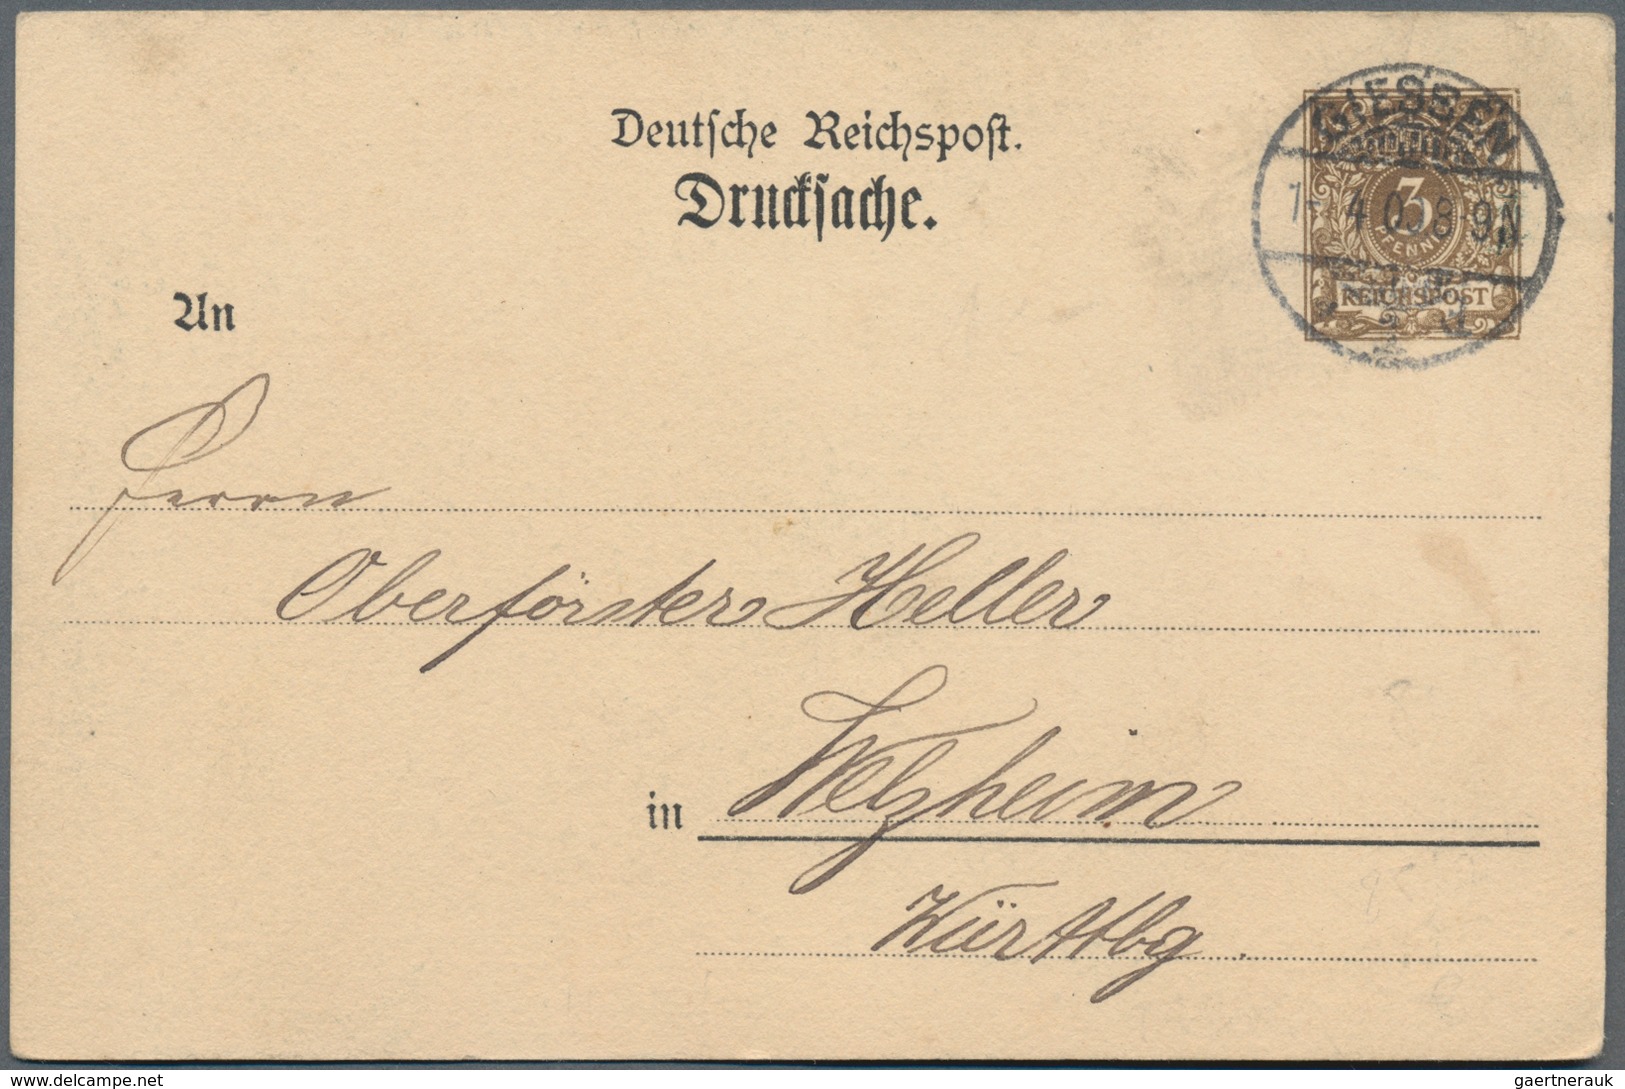 Deutsche Reichspost.
Drucksache.
GIESSEN
3
PFENNIG
REICHSPOST
8-9N
An
Herrn
Oberförster Heller
in Welzheim
Württbg.
gaertnerauk